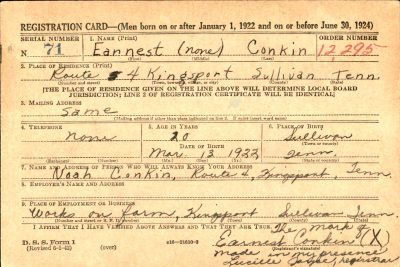 REGISTRATION CARD—(Men born on or after January 1, 1922 and on or before June 30, 1924)
SERIAL NUMBER 1. NAME (Print) ORDER NUMBER
N 71 Earnest (none) Conkin 12,295
(First) (Middle) (Last)
2. PLACE OF RESIDENCE (Print)
Route 4 Kingsport Sullivan Tenn.
[THE PLACE OF RESIDENCE GIVEN ON THE LINE ABOVE WILL DETERMINE LOCAL BOARD
JURISDICTION; LINE 2 OF REGISTRATION CERTIFICATE WILL BE IDENTICAL]
3. MAILING ADDRESS
Same
[Mailing address if other than place indicated on line 2. If same insert word same]
4. TELEPHONE 5. AGE IN YEARS 6. PLACE OF BIRTH
none 20 Sullivan
DATE OF BIRTH (Town or county)
Mar. 13 1922 Tenn.
(Exchange) (Number) (Mo.) (Day) (Yr.) (State or country)
7. NAME AND ADDRESS OF PERSON WHO WILL ALWAYS KNOW YOUR ADDRESS
Noah Conkin, Route 4, Kingsport, Tenn.
8. EMPLOYER'S NAME AND ADDRESS
9. PLACE OF EMPLOYMENT OR BUSINESS
Works on farm, Kingsport Sullivan Tenn.
I AFFIRM THAT I HAVE VERIFIED ABOVE ANSWERS AND THAT THEY ARE TRUE. The mark of
D. S. S. Form 1 Earnest Conkin (X)
(Revised 6-9-42) (over) 16—21630-2 made in my presence,
Lucille registrar